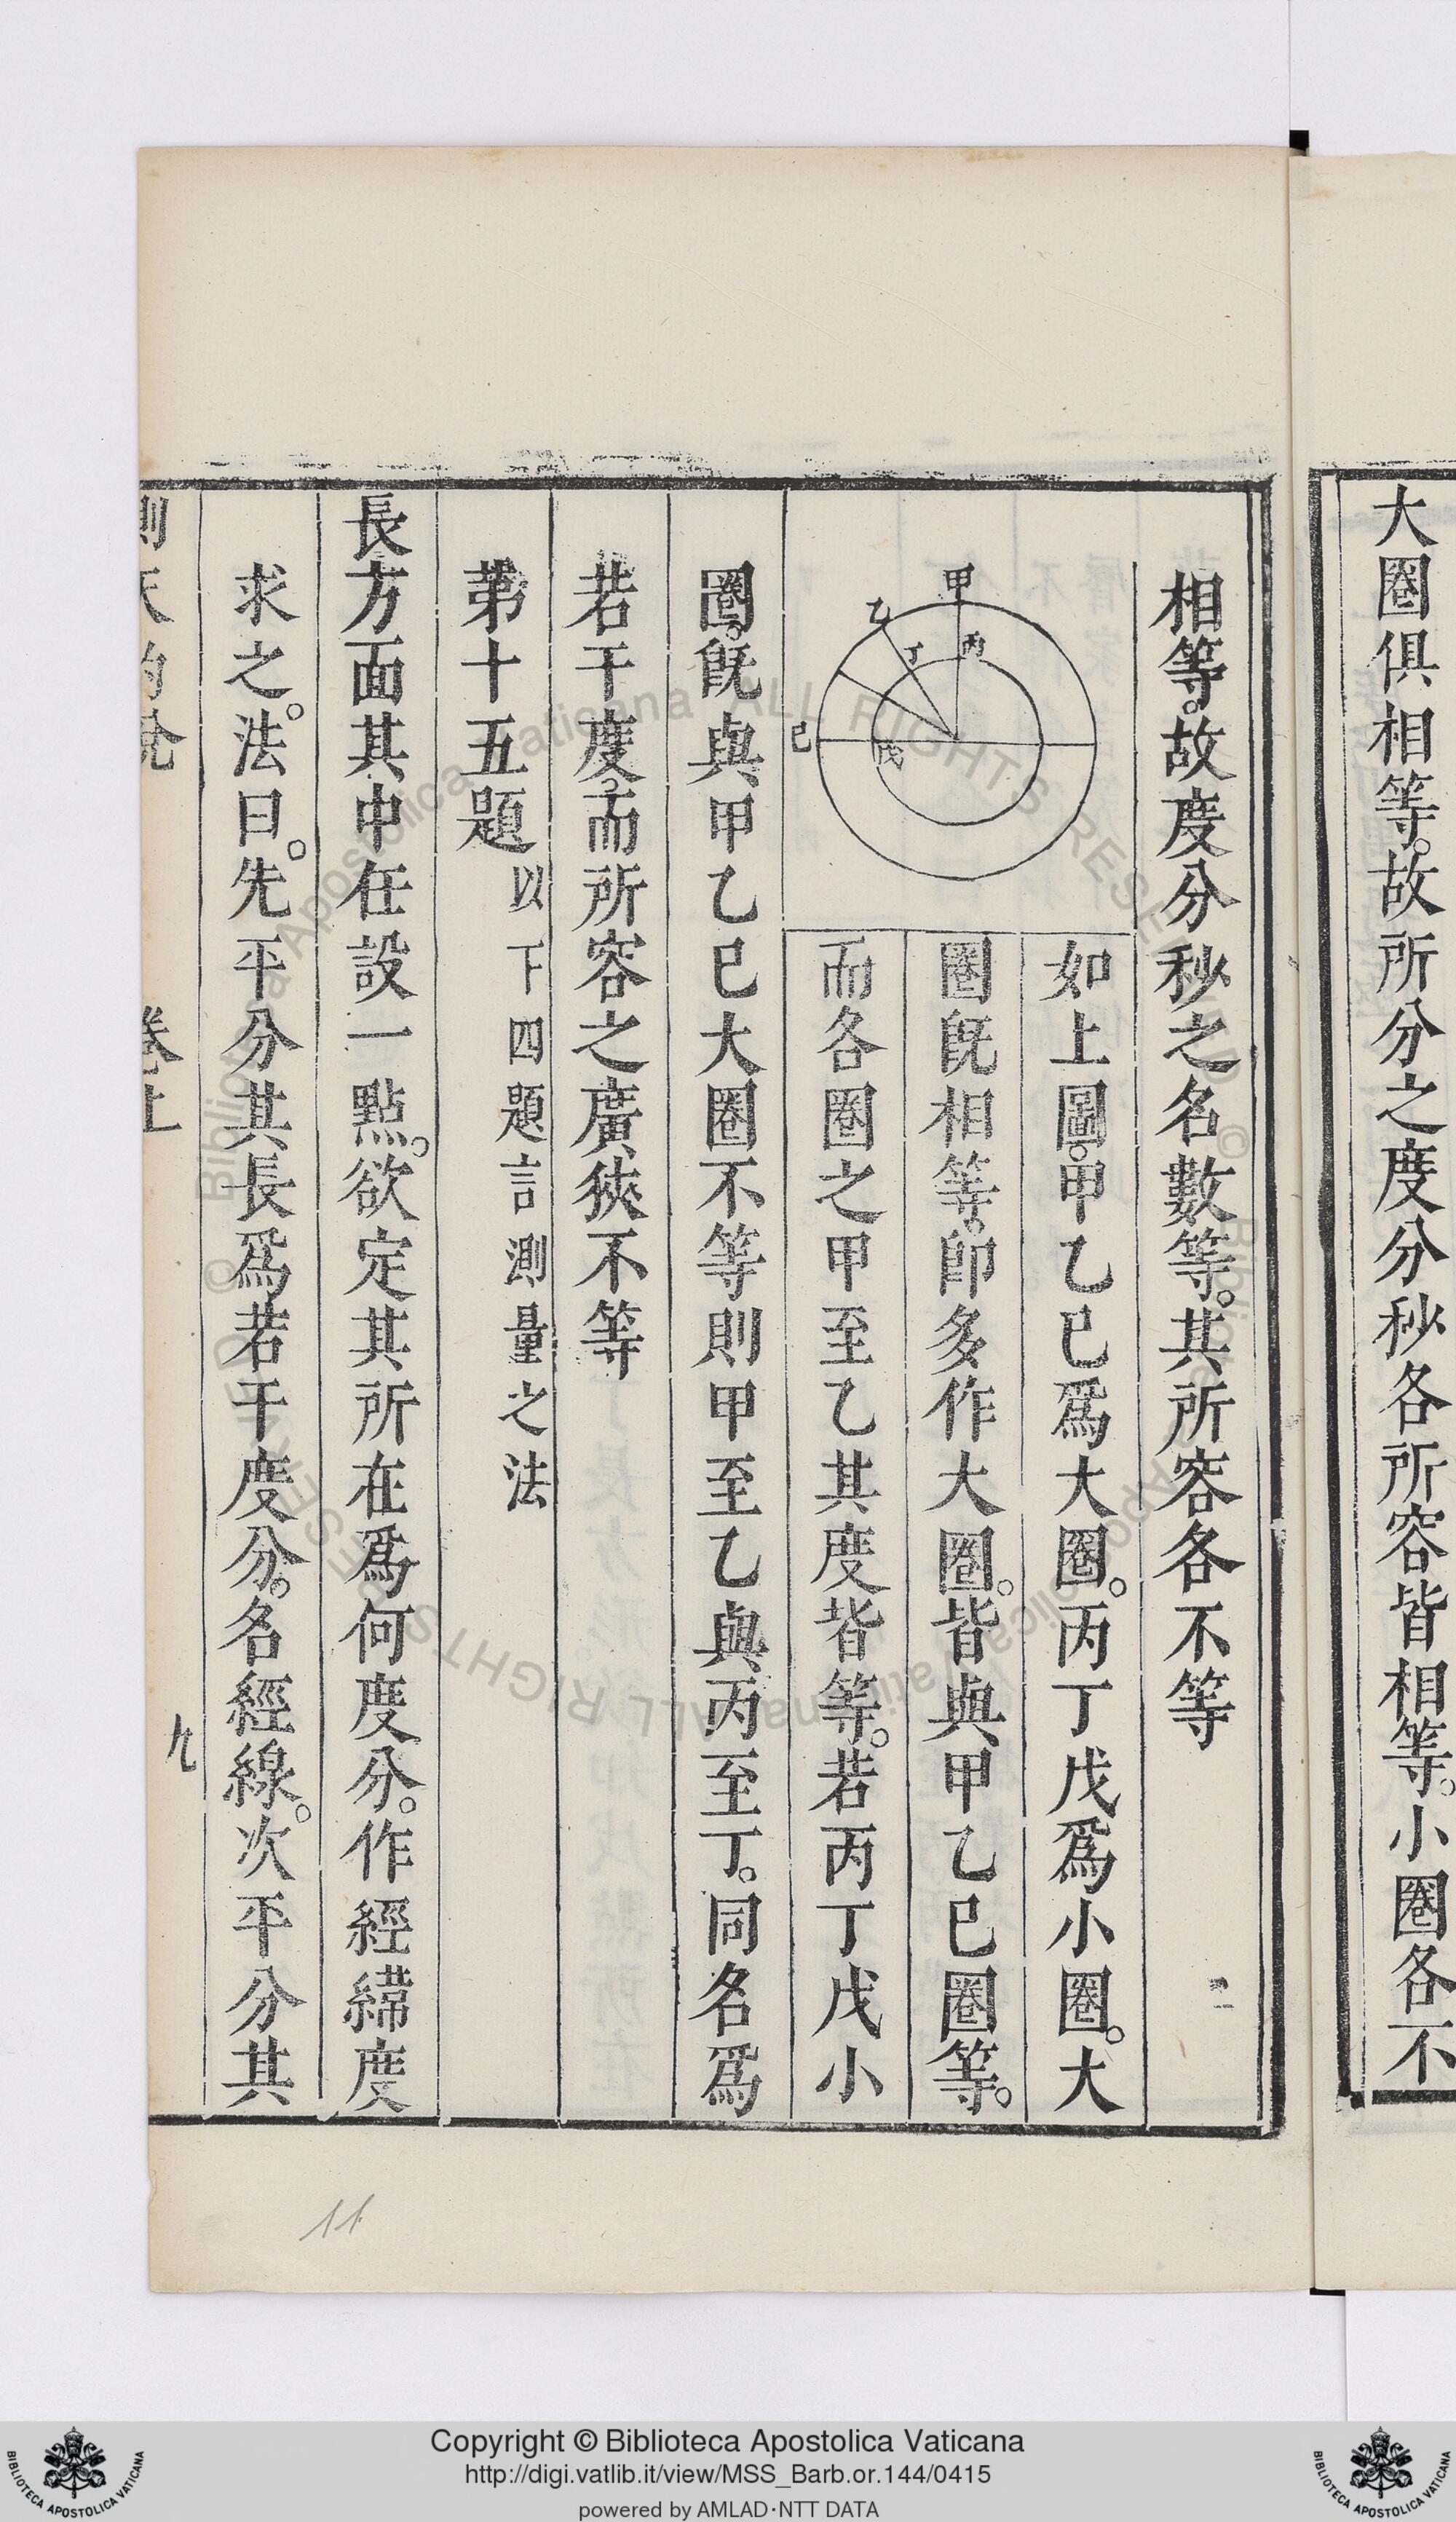 大圈俱相等。故所分之度分秒各所容皆相等。小圈各不
相等。故度分秒之名數等。其所容各不等
甲
乙
丙
丁
己
戊
如上圖。甲乙已爲大圈。丙丁戊爲小圈。大
圈旣相等。卽多作大圈。皆與甲乙已圈等。
而各圈之甲至乙其度皆等。若丙丁戊小
圈。旣與甲乙已大圈不等則甲至乙與丙至丁。同名爲
若干度。而所容之廣狹不等
第十五題以下四題言測量之法
長方面其中任設一點。欲定其所在爲何度分。作經緯度
求之。法曰。先平分其長爲若干度分。名經線。次平分其
測天約說 卷上 九
11
Biblioteca Apostolica Vaticana ALL RIGHTS RESERVED ©
Copyright © Biblioteca Apostolica Vaticana
http://digi.vatlib.it/view/MSS_Barb.or.144/0415
powered by AMLAD·NTT DATA
BIBLIOTECA APOSTOLICA VATICANA
BIBLIOTECA APOSTOLICA VATICANA